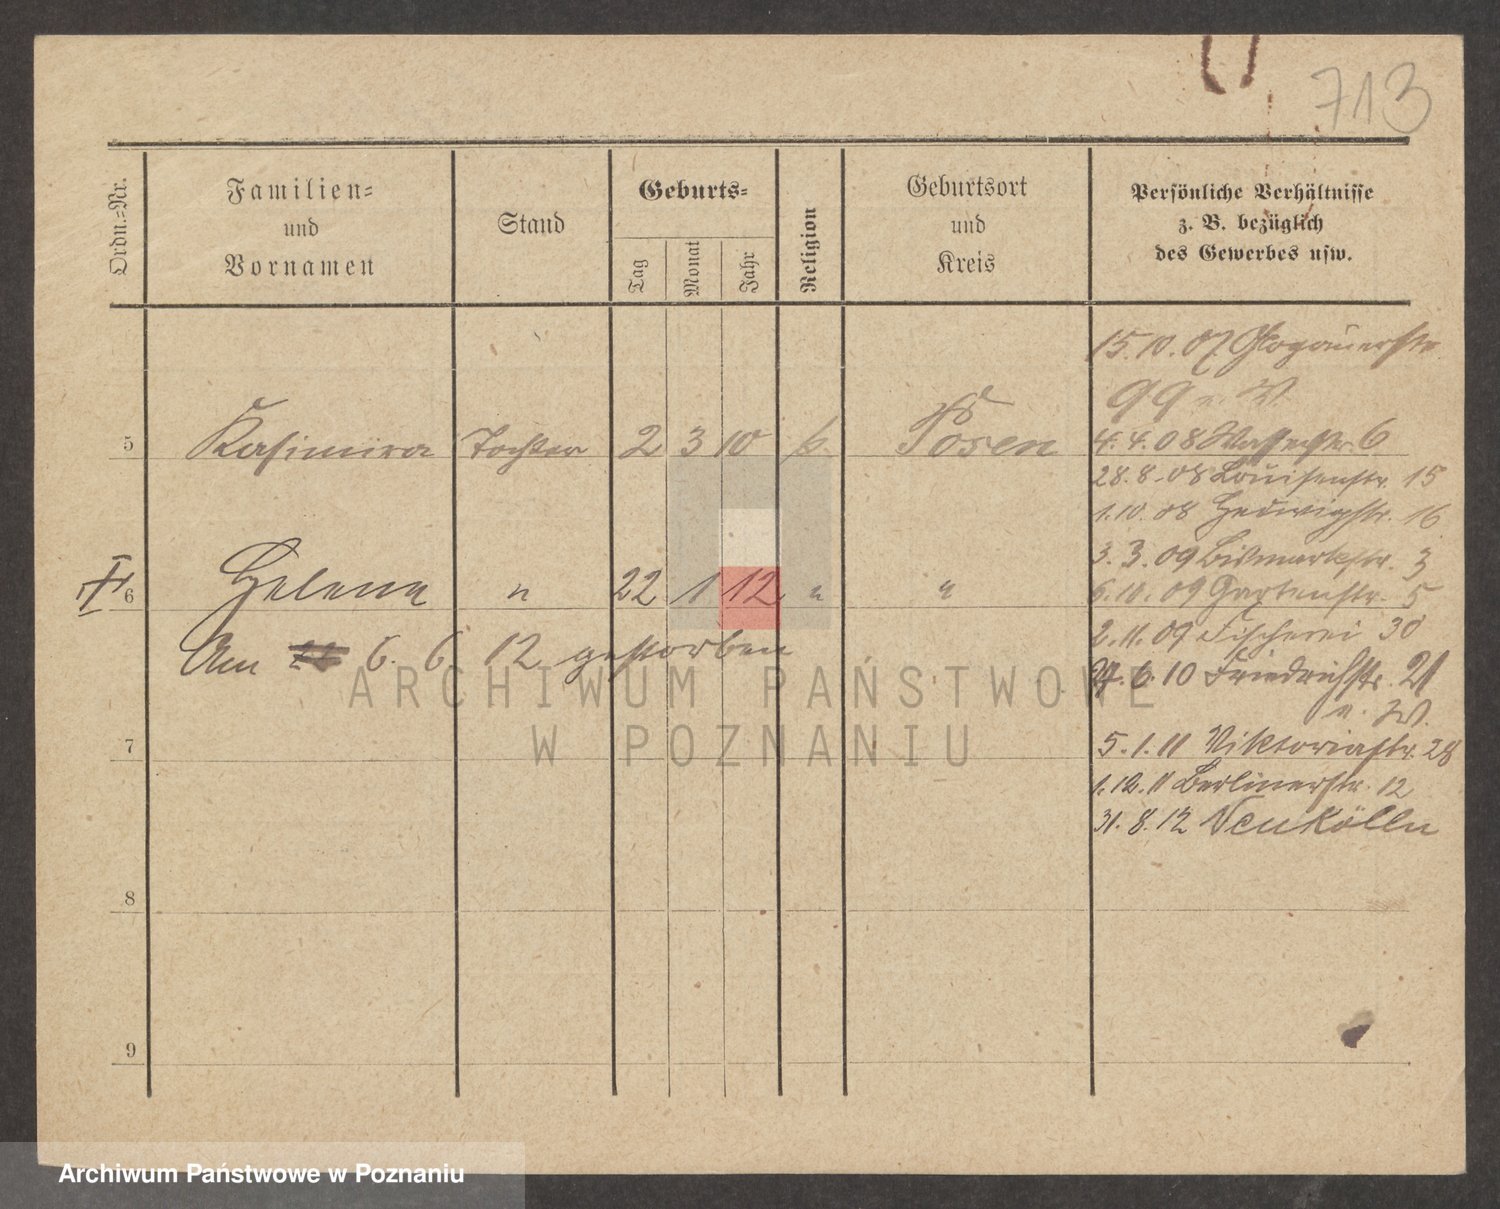 713
Ordn.=Nr.
Familien=
und
Vornamen
Stand
Geburts=
Tag
Monat
Jahr
Religion
Geburtsort
und
Kreis
Persönliche Verhältnisse
z. B. bezüglich
des Gewerbes usw.
15. 10. 07 Glogauerstr
99 n. W.
5 Kasimira Tochter 2 3 10 k. Posen
4. 4. 08 Wasserstr. 6
28. 8. 08 Louisenstr. 15
1. 10. 08 Hedwigstr. 16
3. 3. 09 Bismarkstr. 3
6 Helena " 22 1 12 " "
6. 10. 09 Gartenstr. 5
2. 11. 09 Fischerei 30
Am 6. 6 12 gestorben
6. 10 Friedrichstr. 21
n. W.
7
5. 1. 11 Viktoriastr. 28
1. 12. 11 Berlinerstr. 12
31. 8. 12 Neukölln
8
9
ARCHIWUM PAŃSTWOWE
W POZNANIU
Archiwum Państwowe w Poznaniu